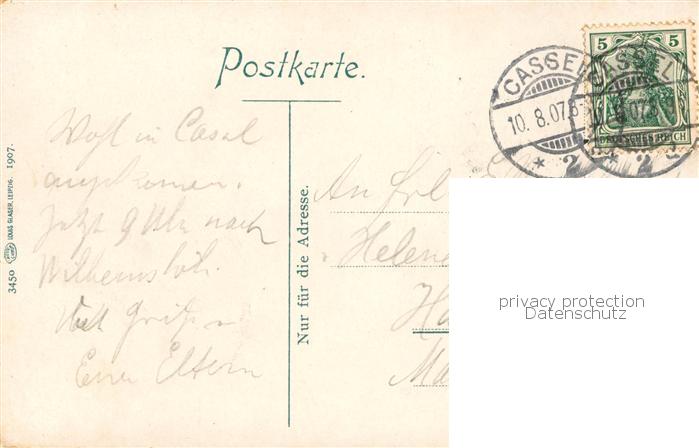 Postkarte.
CASSEL
10. 8. 07. 8
* 2
CASSEL
* 2
5 5
DEUTSCHES REICH
Wohl in Casel
angekomen.
Jetzt 9 Uhr nach
Wilhelmshöh.
Eure Eltern
3450 LOUIS GLASER, LEIPZIG. 1907.
Nur für die Adresse.
An Frl
Helene
Ha
Ma
privacy protection
Datenschutz